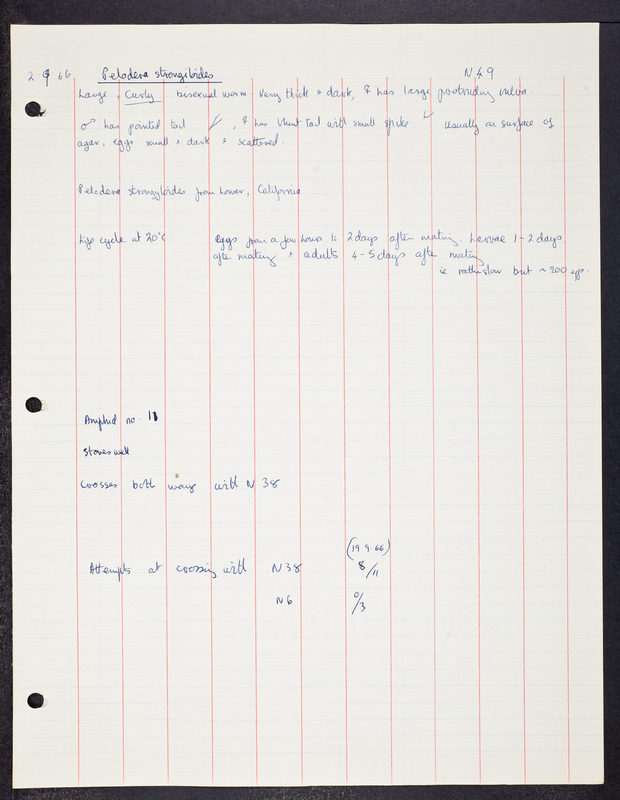 2 9 66 Pelodera strongiloides N49
Large, Curly bisexual worm. Very thick & dark, ♀ has large protruding vulva.
♂ has pointed tail, ♀ has blunt tail with small spike usually on surface of
agar, eggs small & dark & scattered.
Pelodera strongyloides from Lower, California
Life cycle at 20°C. Eggs from a few hours to 2 days after mating. Larvae 1-2 days
after mating & adults 4-5 days after mating
ie rather slow but ~ 200 eggs.
Amphid no. 11
Stores well
Crosses both ways with N 38
(19.9.66)
Attempts at crossing with N38 8/11
N6 0/3